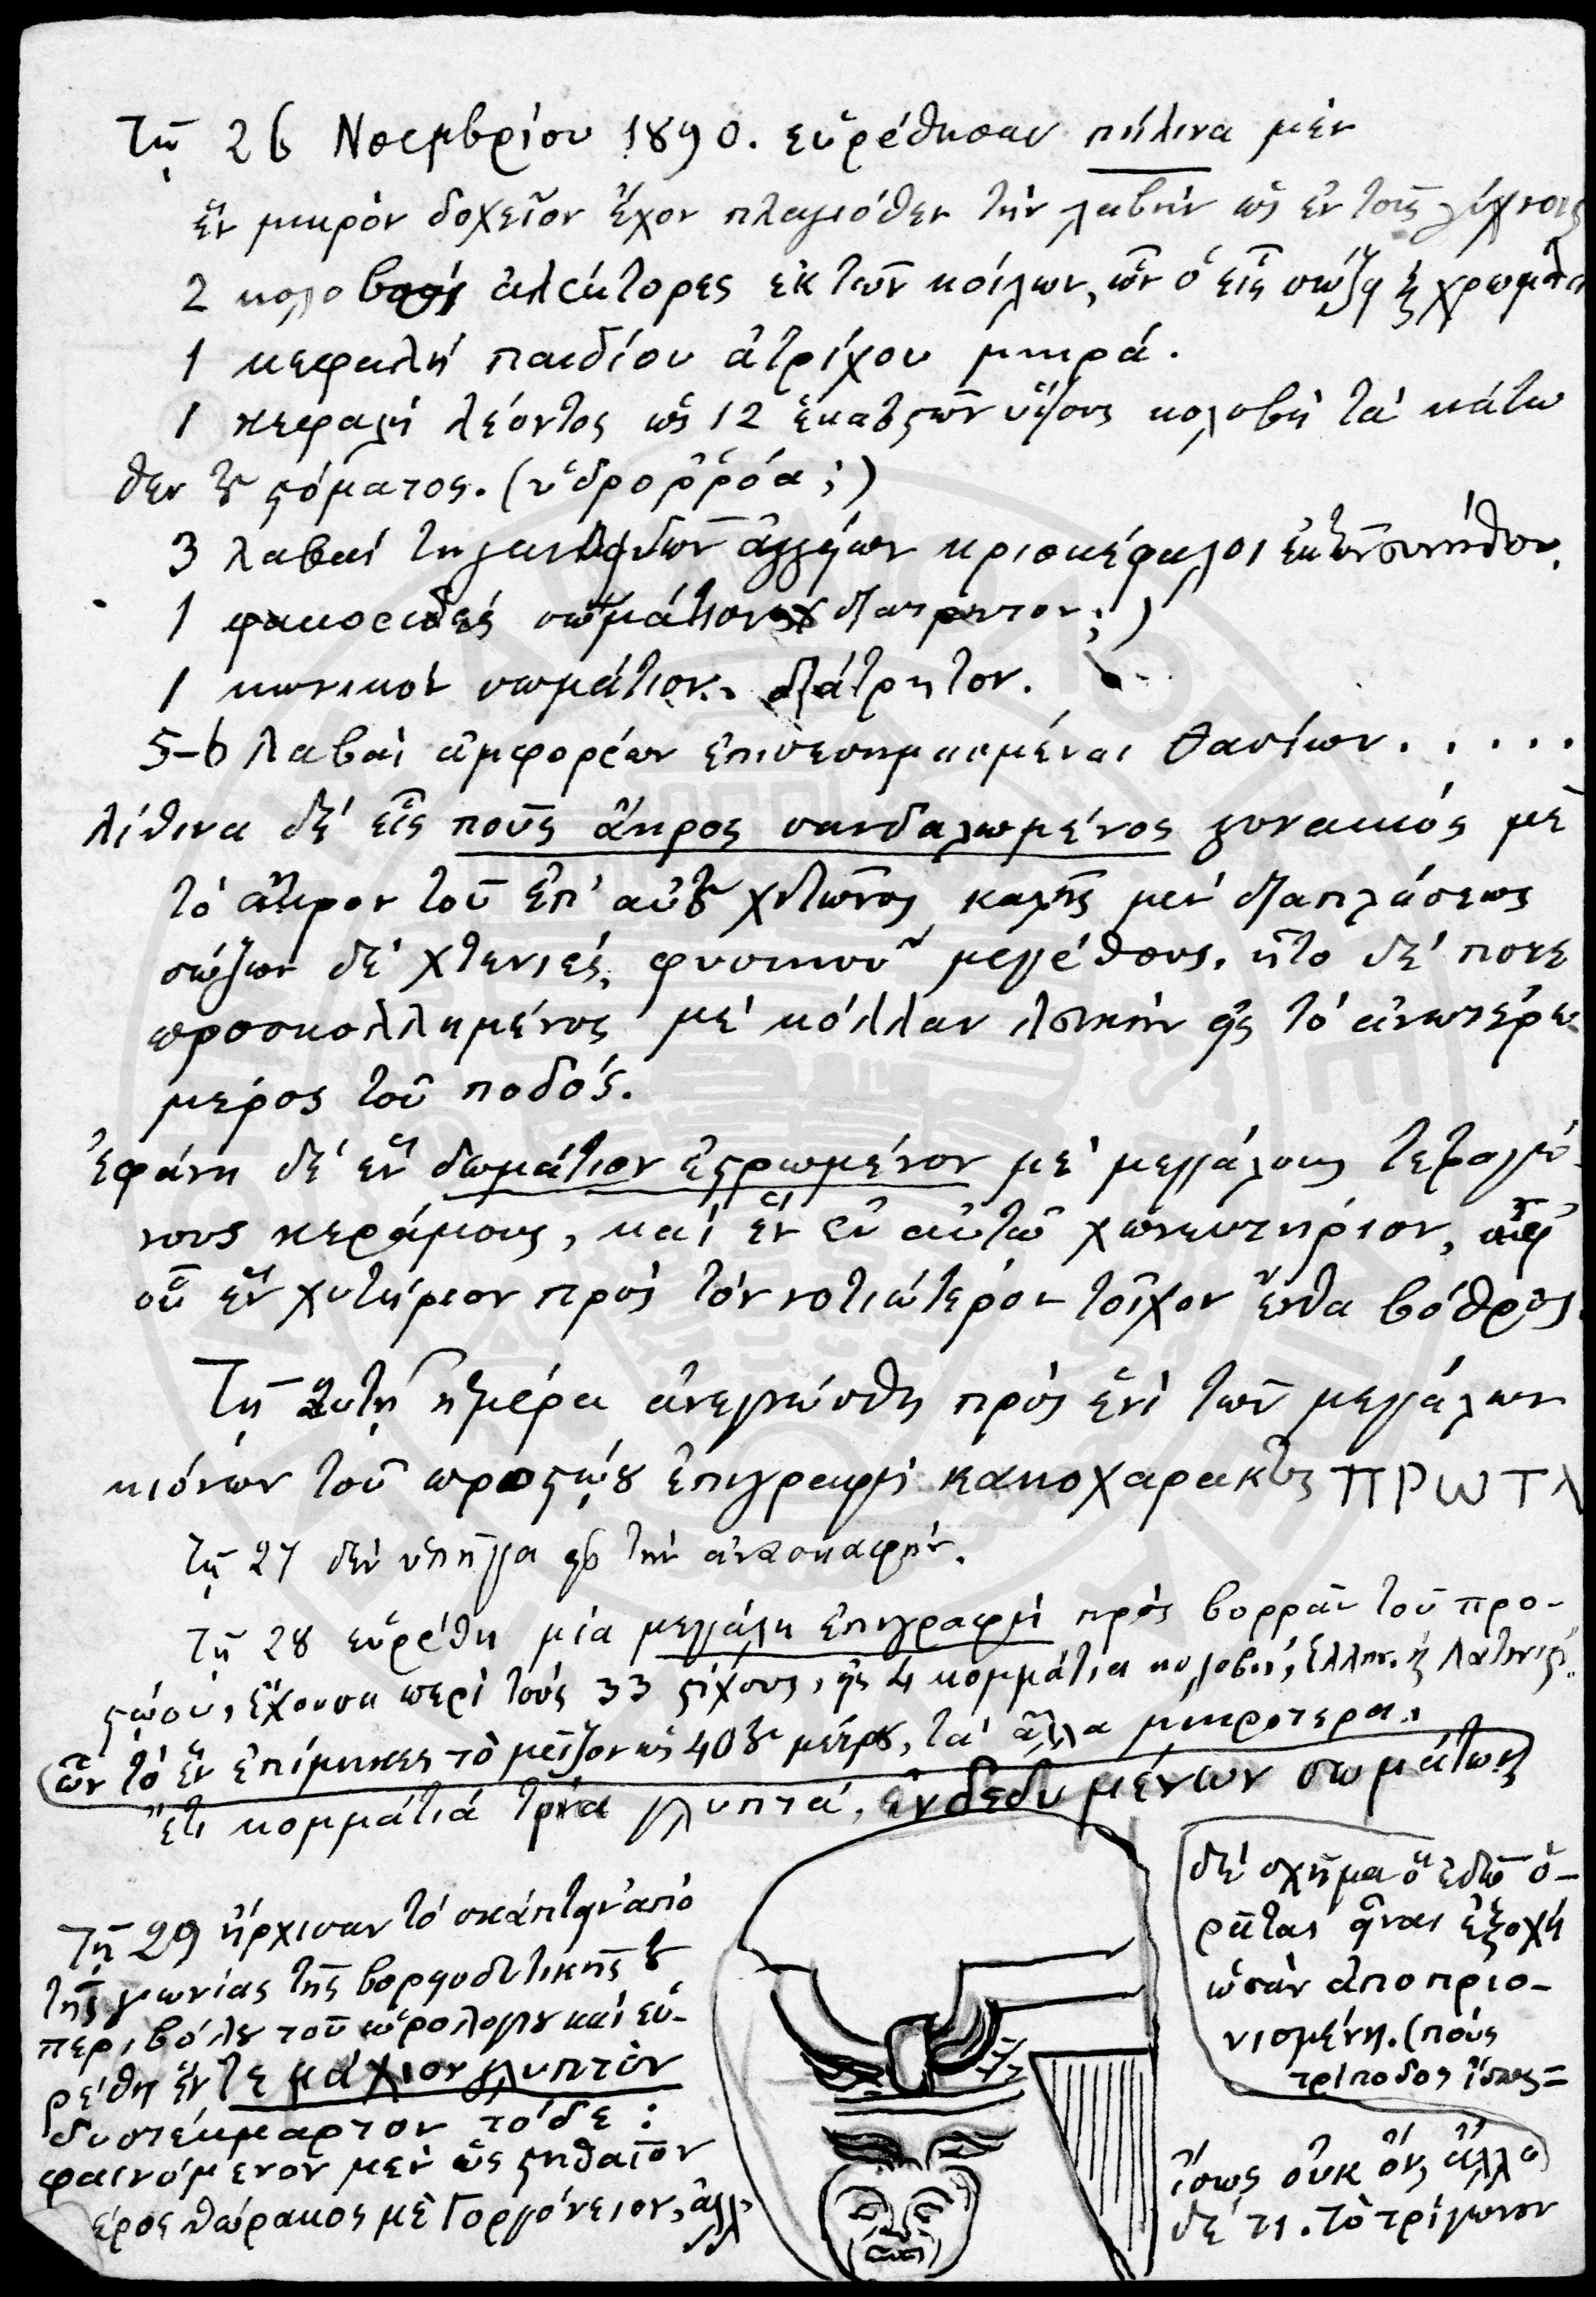 Τῇ 26 Νοεμβρίου 1890. εὑρέθησαν πήλινα μὲν
ἓν μικρὸν δοχεῖον ἔχον πλαγιόθεν τὴν λαβὴν ὡς ἐν τοῖς λύχνοις
2 κολοβοὶ ἀλέκτορες ἐκ τῶν κοίλων, ὧν ὁ εἷς σώζει ἓξ χρώματα
1 κεφαλὴ παιδίου ἀτρίχου μικρά.
1 κεφαλὴ λέοντος ὡς 12 ἑκατοστῶν ὕψους κολοβὴ τὰ κάτω
θεν τοῦ στόματος. (ὑδρορρόα;)
3 λαβαὶ τηγανοειδῶν ἀγγείων κριοκέφαλοι ἐκ τῶν συνήθων.
1 φακοειδὲς σωμάτιον διάτρητον;)
1 κωνικὸν σωμάτιον διάτρητον.
5-6 λαβαὶ ἀμφορέων ἐπισεσημασμέναι Θασίων.....
λίθινα δὲ εἷς ποῦς ἄκρος σανδαλωμένος γυναικός μὲ
τὸ ἄκρον τοῦ ἐπ' αὐτοῦ χιτῶνος καλῆς μὲν διαπλάσεως
σώζων δὲ χτενιές, φυσικοῦ μεγέθους. ἦτο δέ ποτε
προσκολλημένος μὲ κόλλαν εἰς τὸ ἀνωτέρω
μέρος τοῦ ποδός.
Ἐφάνη δὲ ἓν δωμάτιον ἐστρωμένον μὲ μεγάλους τετραγώ-
νους κεράμους, καὶ ἓν ἐν αὐτῷ χωνευτήριον,
οὗ ἓν χυτήριον πρὸς τὸν νοτιώτερον τοῖχον ἔνθα βόθρος.
Τῇ αὐτῇ ἡμέρᾳ ἀνεγνώσθη πρὸς ἑνὶ τῶν μεγάλων
κιόνων τοῦ προστῴου ἐπιγραφὴ κακοχάρακτος ΠΡΩΤΛ
Τῇ 27 δὲν ὑπῆγα εἰς τὴν ἀνασκαφήν.
Τῇ 28 εὑρέθη μία μεγάλη ἐπιγραφὴ πρὸς βορρᾶν τοῦ προ-
στῴου, ἔχουσα περὶ τοὺς 33 στίχους, εἰς 4 κομμάτια κολοβή, Ἑλλην. ἢ Λατινική.
ὧν τὸ ἓν ἐπίμηκες τὸ μεῖζον ὡς 40 τοῦ μέτρου, τὰ ἄλλα μικρότερα.
Ἔτι κομμάτιά τρία γλυπτά, ἐνδεδυμένων σωμάτων
Τῇ 29 ἤρχισαν τὸ σκάπτειν ἀπὸ
τῆς γωνίας τῆς βορειοδυτικῆς τοῦ
περιβόλου τοῦ ὡρολογίου καὶ εὑ-
ρέθη ἓν τεμάχιον γλυπτὸν
δυστέκμαρτον τόδε:
φαινόμενον μὲν ὡς στηθαῖον
μέρος θώρακος μὲ Γοργόνειον, ἀλλ'
δὲ σχῆμα ὃ ἐδῶ ὁ-
ρᾶται εἶναι ἐξοχή
ὡσὰν ἀποπριο-
νισμένη. (πούς
τρίποδος ἴσως=
ἴσως οὐκ ὄν, ἄλλο
δέ τι. τὸ τρίγωνον